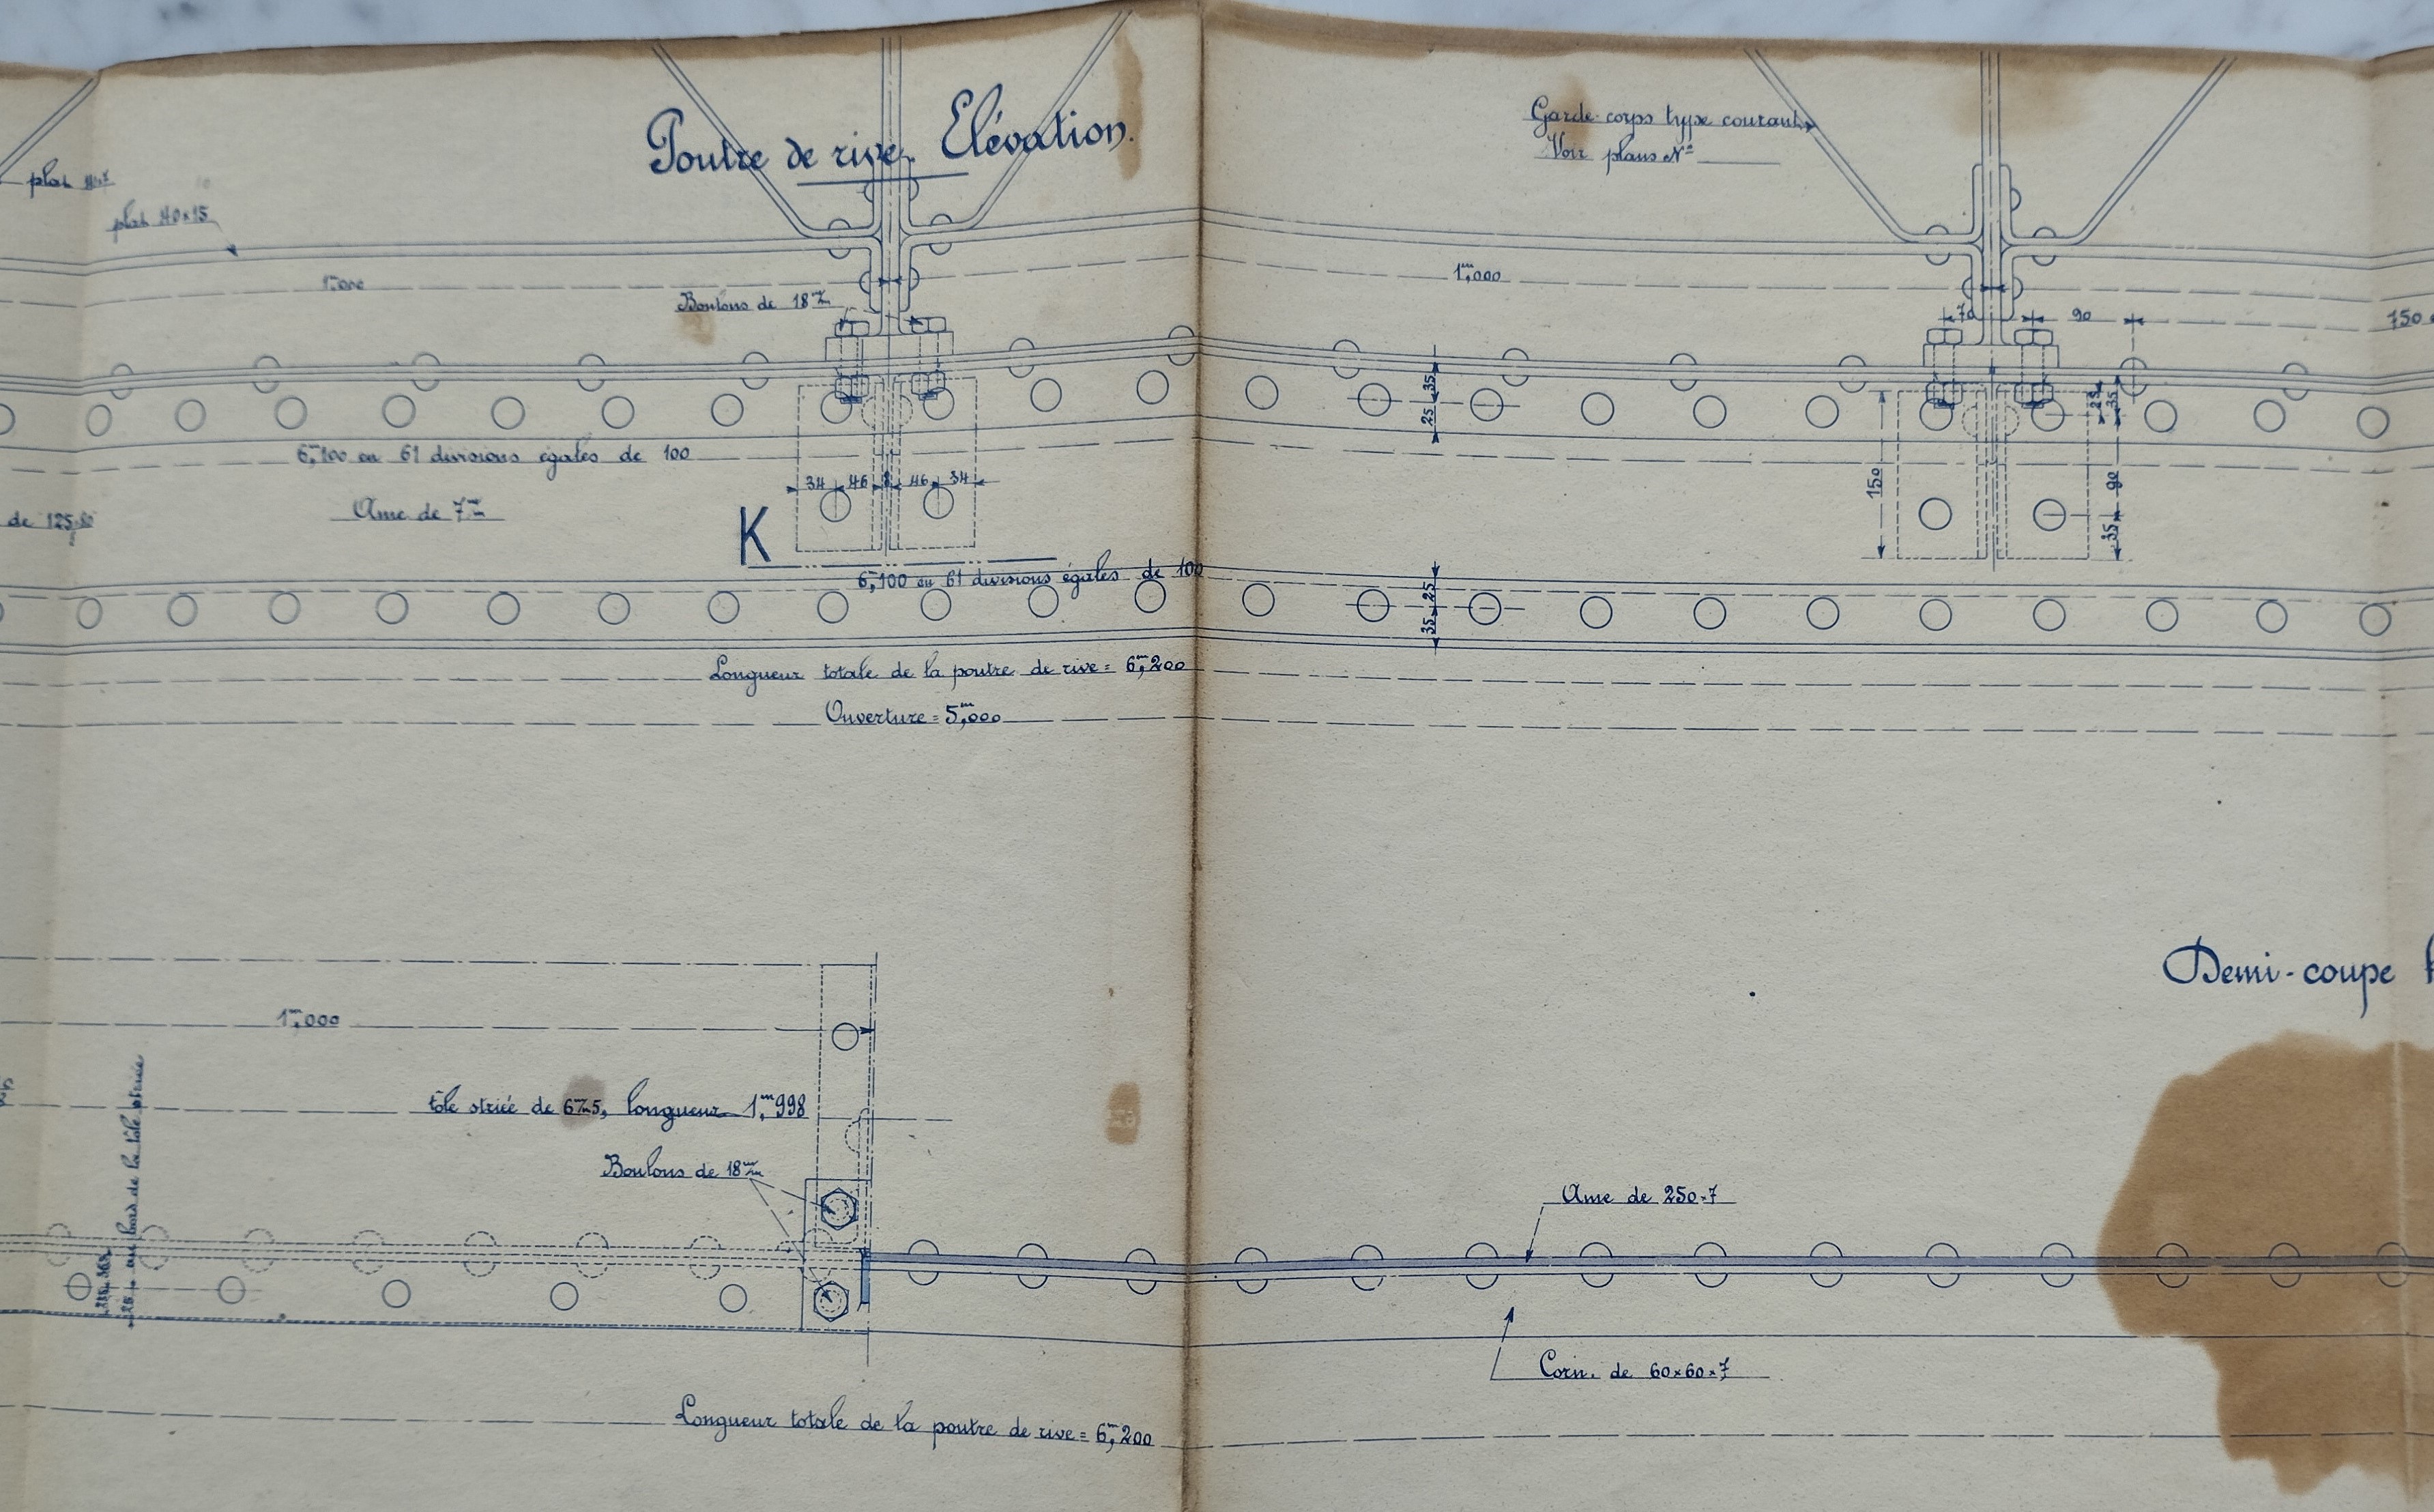 Poutre de rive. Elévation.
Garde-corps type courant
Voir plans Nº
plat
plat 40×15
1m,000
1m,000
Boulons de 18 m/m
70
90
150
35
25
25
35
6m,100 en 61 divisions égales de 100
34 46 46 34
150
90
35
de 125
Ame de 7 m/m
K
6m,100 en 61 divisions égales de 100
25
35
Longueur totale de la poutre de rive = 6m,200
Ouverture = 5m,000
Demi-coupe
1m,000
tôle striée de 6 m/m 5, longueur 1m,998
au bord de la tôle striée
Boulons de 18 m/m
Ame de 250×7
Corn. de 60×60×7
Longueur totale de la poutre de rive = 6m,200